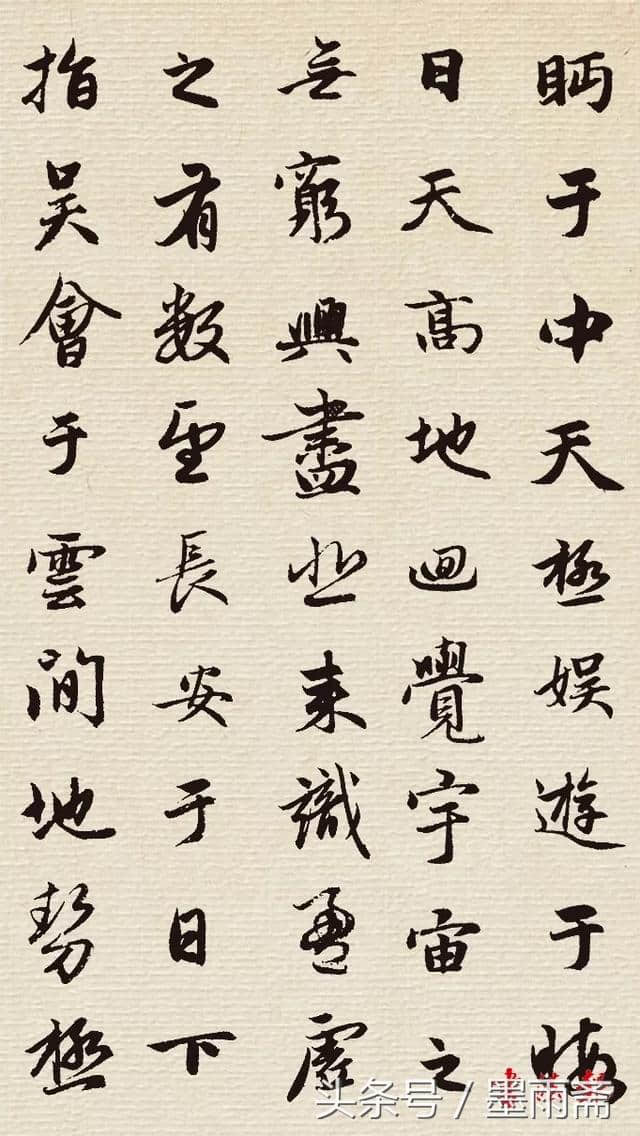 眄于中天極娛遊于暇
日天高地迴覺宇宙之
無窮興盡悲來識盈虛
之有數望長安于日下
指吳會于雲間地勢極
头条号 / 墨雨斋